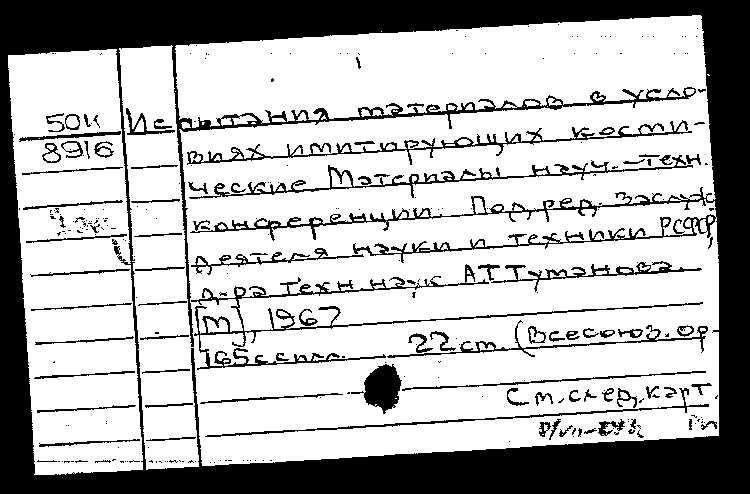 50к Испытания материалов в усло-
8916 виях имитирующих косми-
ческие Материалы науч.-техн.
1 экз. конференции. Под ред. Заслуж
деятеля науки и техники РСФСР,
д-ра техн. наук А.Т.Туманова.
[М], 1967
165с.силл. 22 см. (Всесоюз. ор-
См. след. карт.